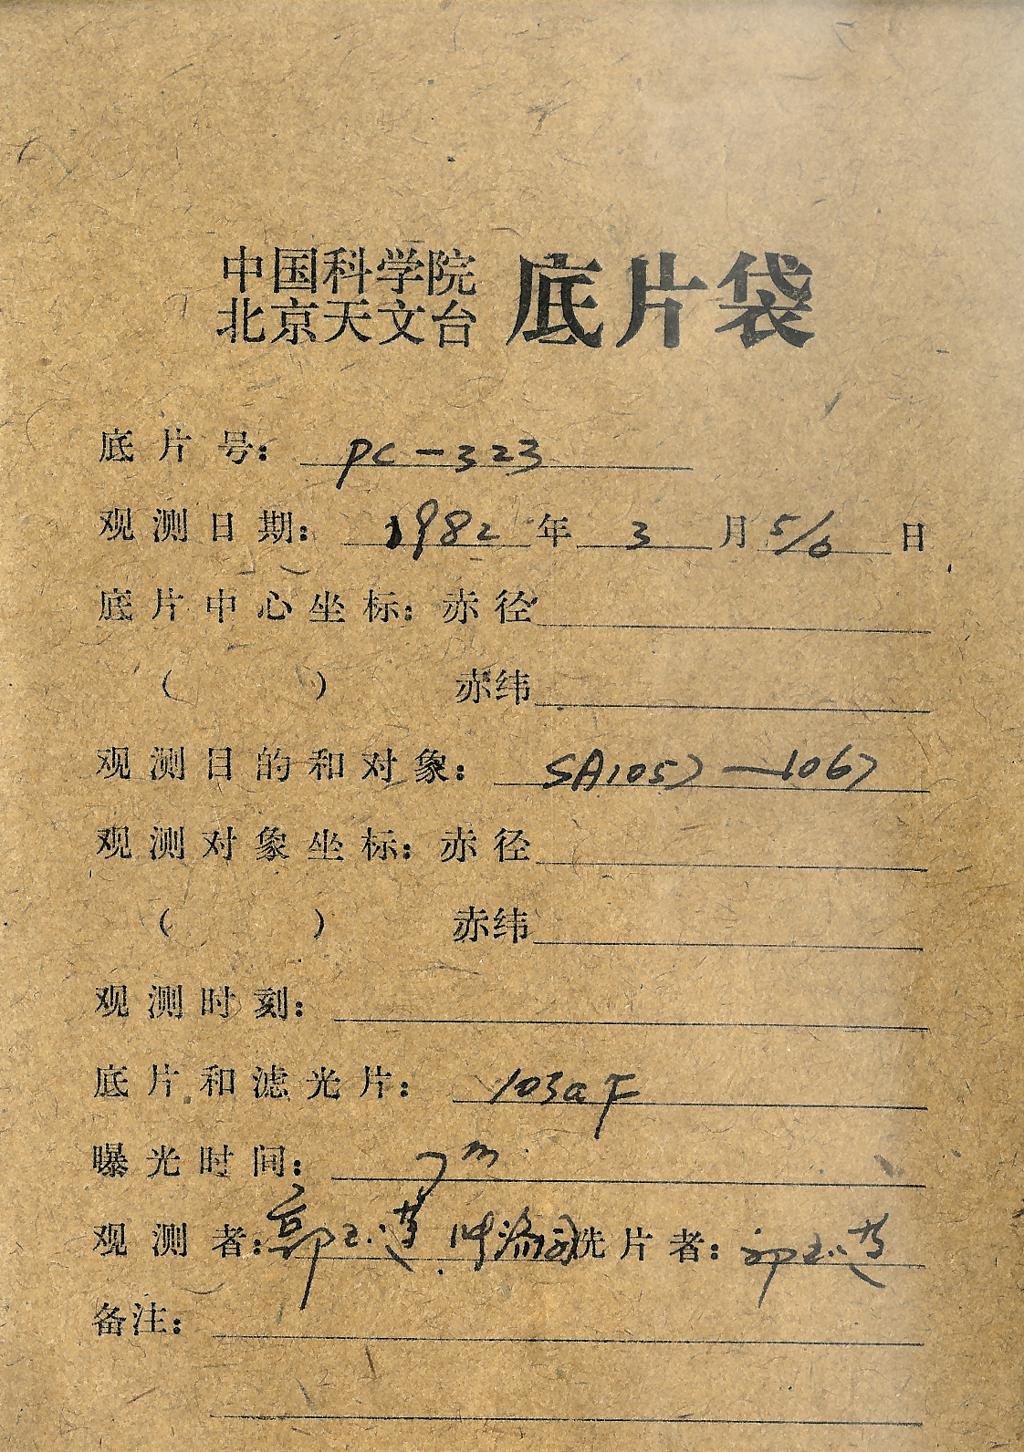 中国科学院
北京天文台 底片袋
底片号: PC-323
观测日期: 1982年3月5/6日
底片中心坐标: 赤径
( ) 赤纬
观测目的和对象: SA1057—1067
观测对象坐标: 赤径
( ) 赤纬
观测时刻:
底片和滤光片: 103aF
曝光时间: 7m
观测者: 郭 洗片者: 郭
备注: